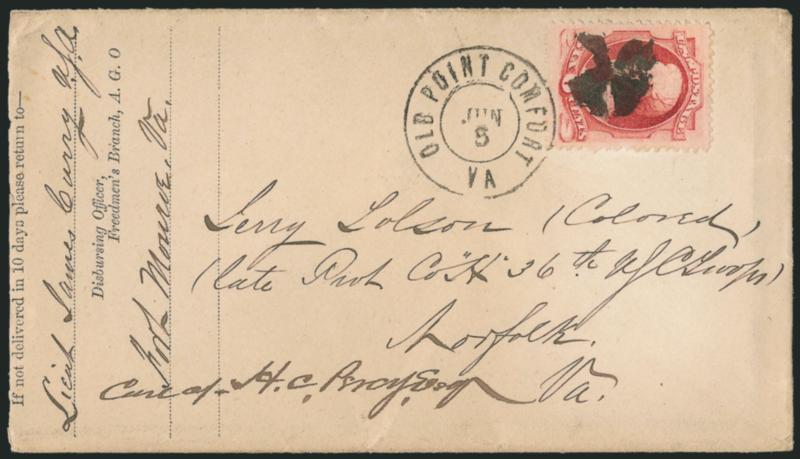 If not delivered in 10 days please return to—
Lieut James Curry USA
Disbursing Officer,
Freedmen's Branch, A. G. O
Fort Monroe, Va.
OLD POINT COMFORT
JUN
5
VA
Jerry Tolson (Colored)
(late Pvt Co "H" 36th US C Troops)
Norfolk.
Care of H. C. Percy Esq Va.